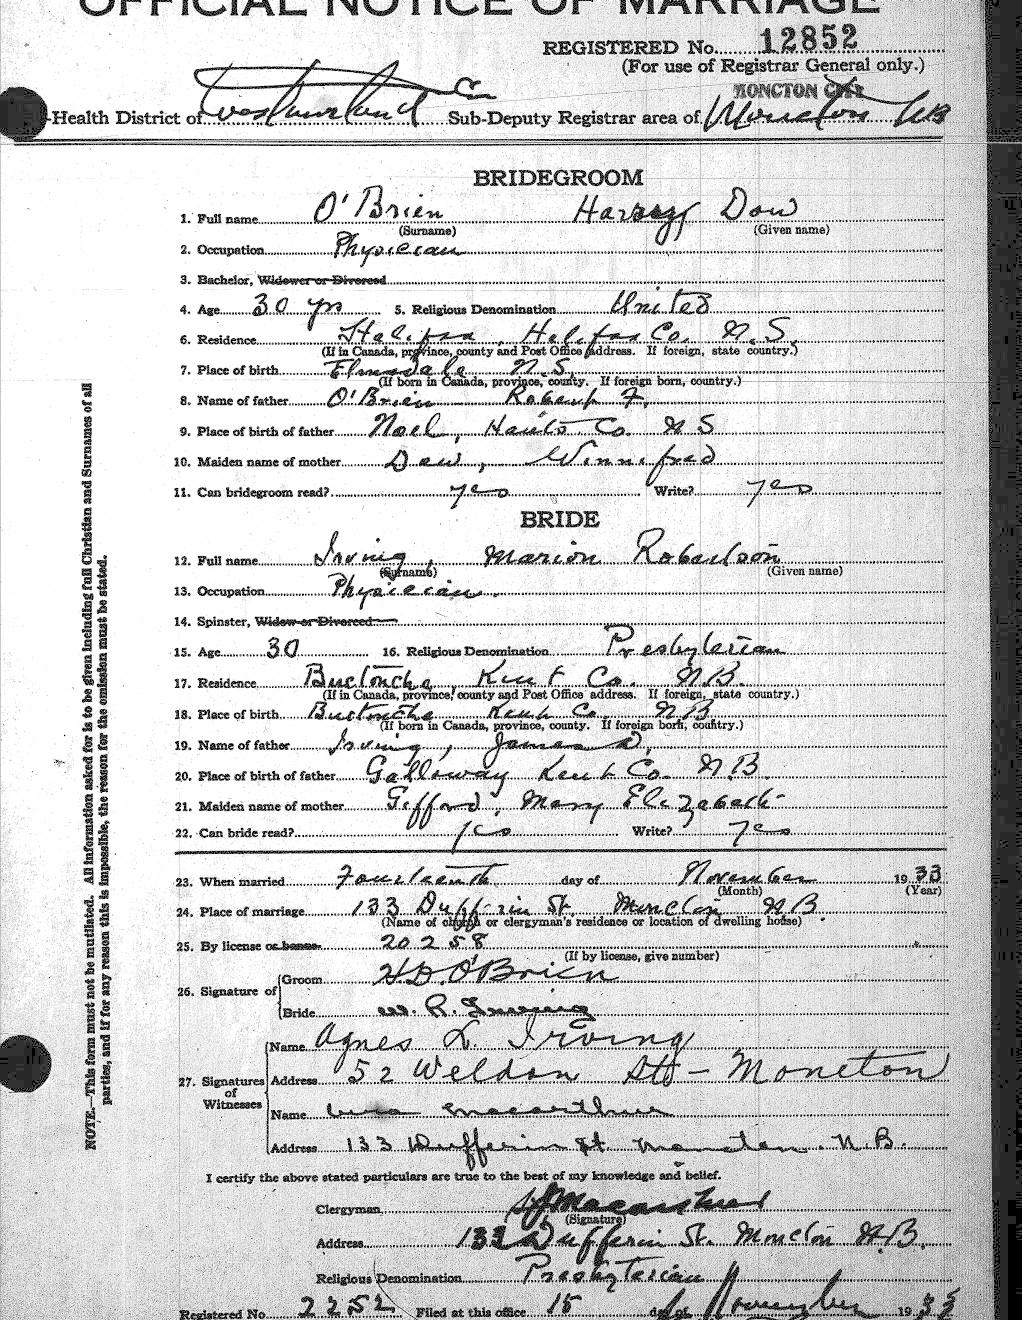 OFFICIAL NOTICE OF MARRIAGE
REGISTERED No. 12852
(For use of Registrar General only.)
MONCTON CITY
Health District of Westmorland Co Sub-Deputy Registrar area of Moncton NB
BRIDEGROOM
1. Full name O'Brien Harvey Dow
(Surname) (Given name)
2. Occupation Physician
3. Bachelor, Widower or Divorced
4. Age 30 yrs 5. Religious Denomination United
6. Residence Halifax, Halifax Co. N.S.
(If in Canada, province, county and Post Office address. If foreign, state country.)
7. Place of birth Elmsdale N.S.
(If born in Canada, province, county. If foreign born, country.)
8. Name of father O'Brien Robert F.
9. Place of birth of father Noel, Hants Co. N S
10. Maiden name of mother Dow, Winnifred
11. Can bridegroom read? yes Write? yes
BRIDE
12. Full name Irving, Marion Robertson
(Surname) (Given name)
13. Occupation Physician.
14. Spinster, Widow or Divorced
15. Age 30 16. Religious Denomination Presbyterian
17. Residence Buctouche Kent Co. N.B.
(If in Canada, province, county and Post Office address. If foreign, state country.)
18. Place of birth Buctouche Kent Co. N.B.
(If born in Canada, province, county. If foreign born, country.)
19. Name of father Irving, James D.
20. Place of birth of father Galloway Kent Co. N.B.
21. Maiden name of mother Gifford, Mary Elizabeth
22. Can bride read? yes Write? yes
23. When married Fourteenth day of November 1933
(Month) (Year)
24. Place of marriage 133 Dufferin St. Moncton N.B.
(Name of church or clergyman's residence or location of dwelling house)
25. By license or banns 20258
(If by license, give number)
26. Signature of Groom H.D. O'Brien
Bride M. R. Irving
27. Signatures of Witnesses Name Agnes L. Irving
Address 52 Weldon St - Moncton
Name MacArthur
Address 133 Dufferin St. Moncton. N.B.
I certify the above stated particulars are true to the best of my knowledge and belief.
Clergyman
(Signature)
Address 133 Dufferin St. Moncton N.B.
Religious Denomination Presbyterian
Registered No. 2252 Filed at this office 15 day of November 1933
NOTE.—This form must not be mutilated. All information asked for is to be given including full Christian and Surnames of all
parties, and if for any reason this is impossible, the reason for the omission must be stated.